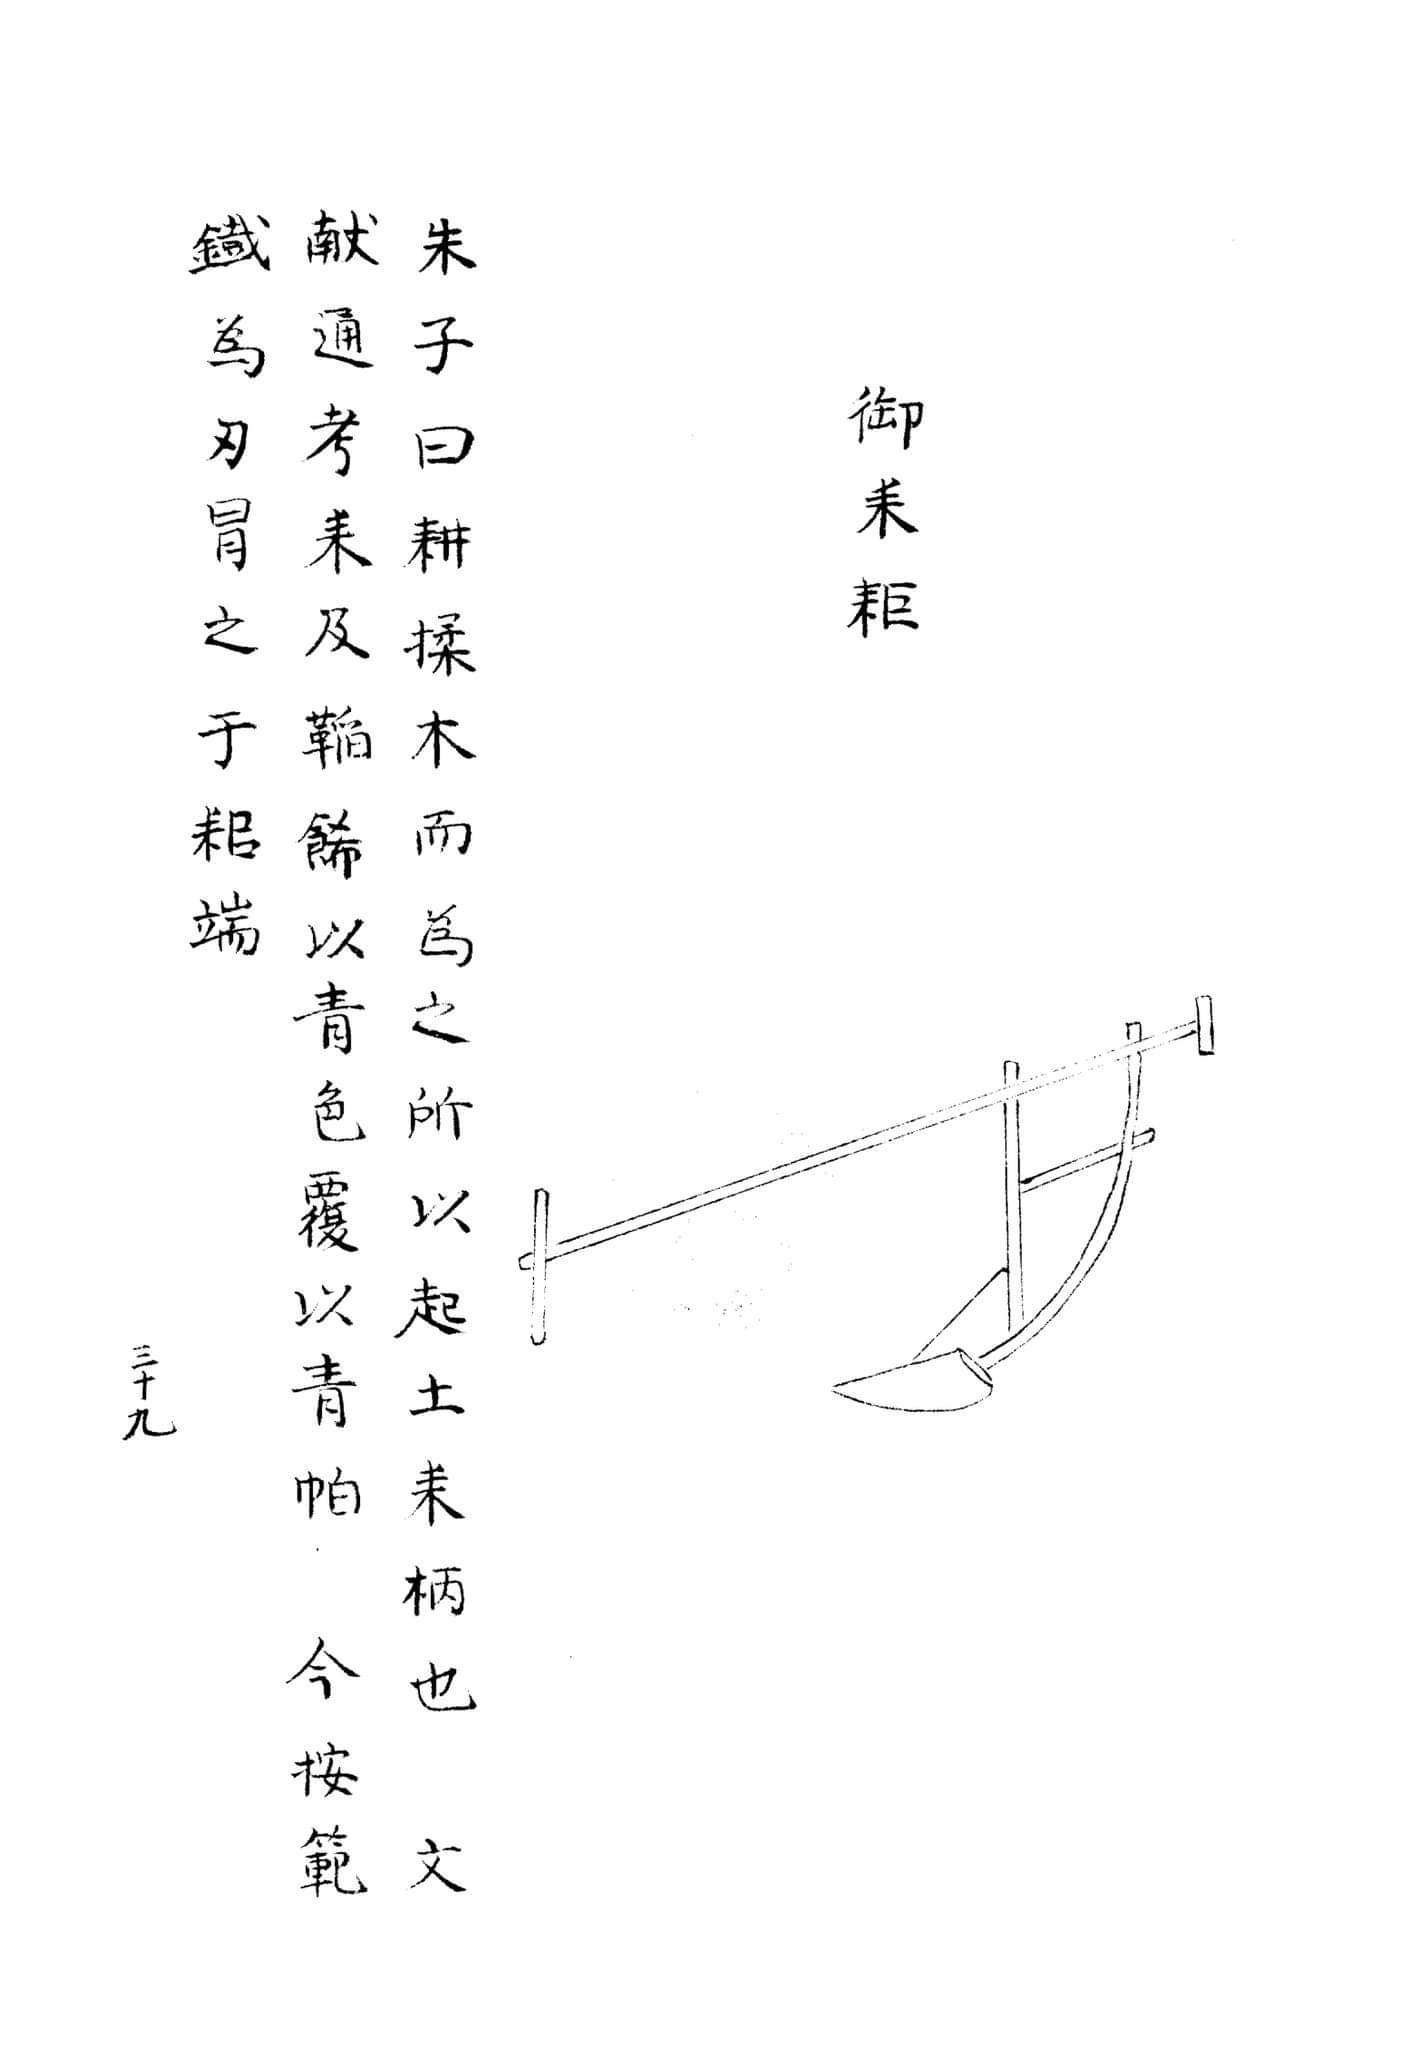 御耒耟
朱子曰耕揉木而為之所以起土耒柄也 文
献通考耒及鞱餙以青色覆以青帕 今按範
鐡為刃冒之于耜端
三十九